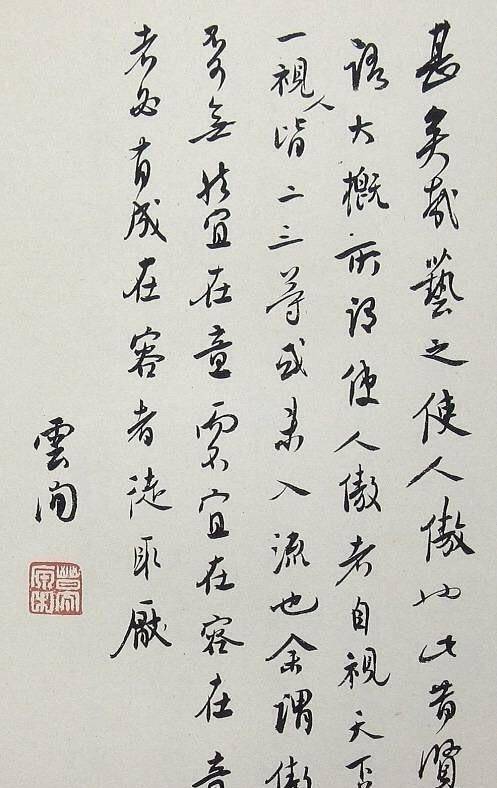 甚矣哉藝之使人傲也此昔賢
語大概所謂使人傲者自視天下
一視人皆二三等或未入流也余謂傲
不可無然宜在意而不宜在容在意
者必有成在容者徒取厭
雲間